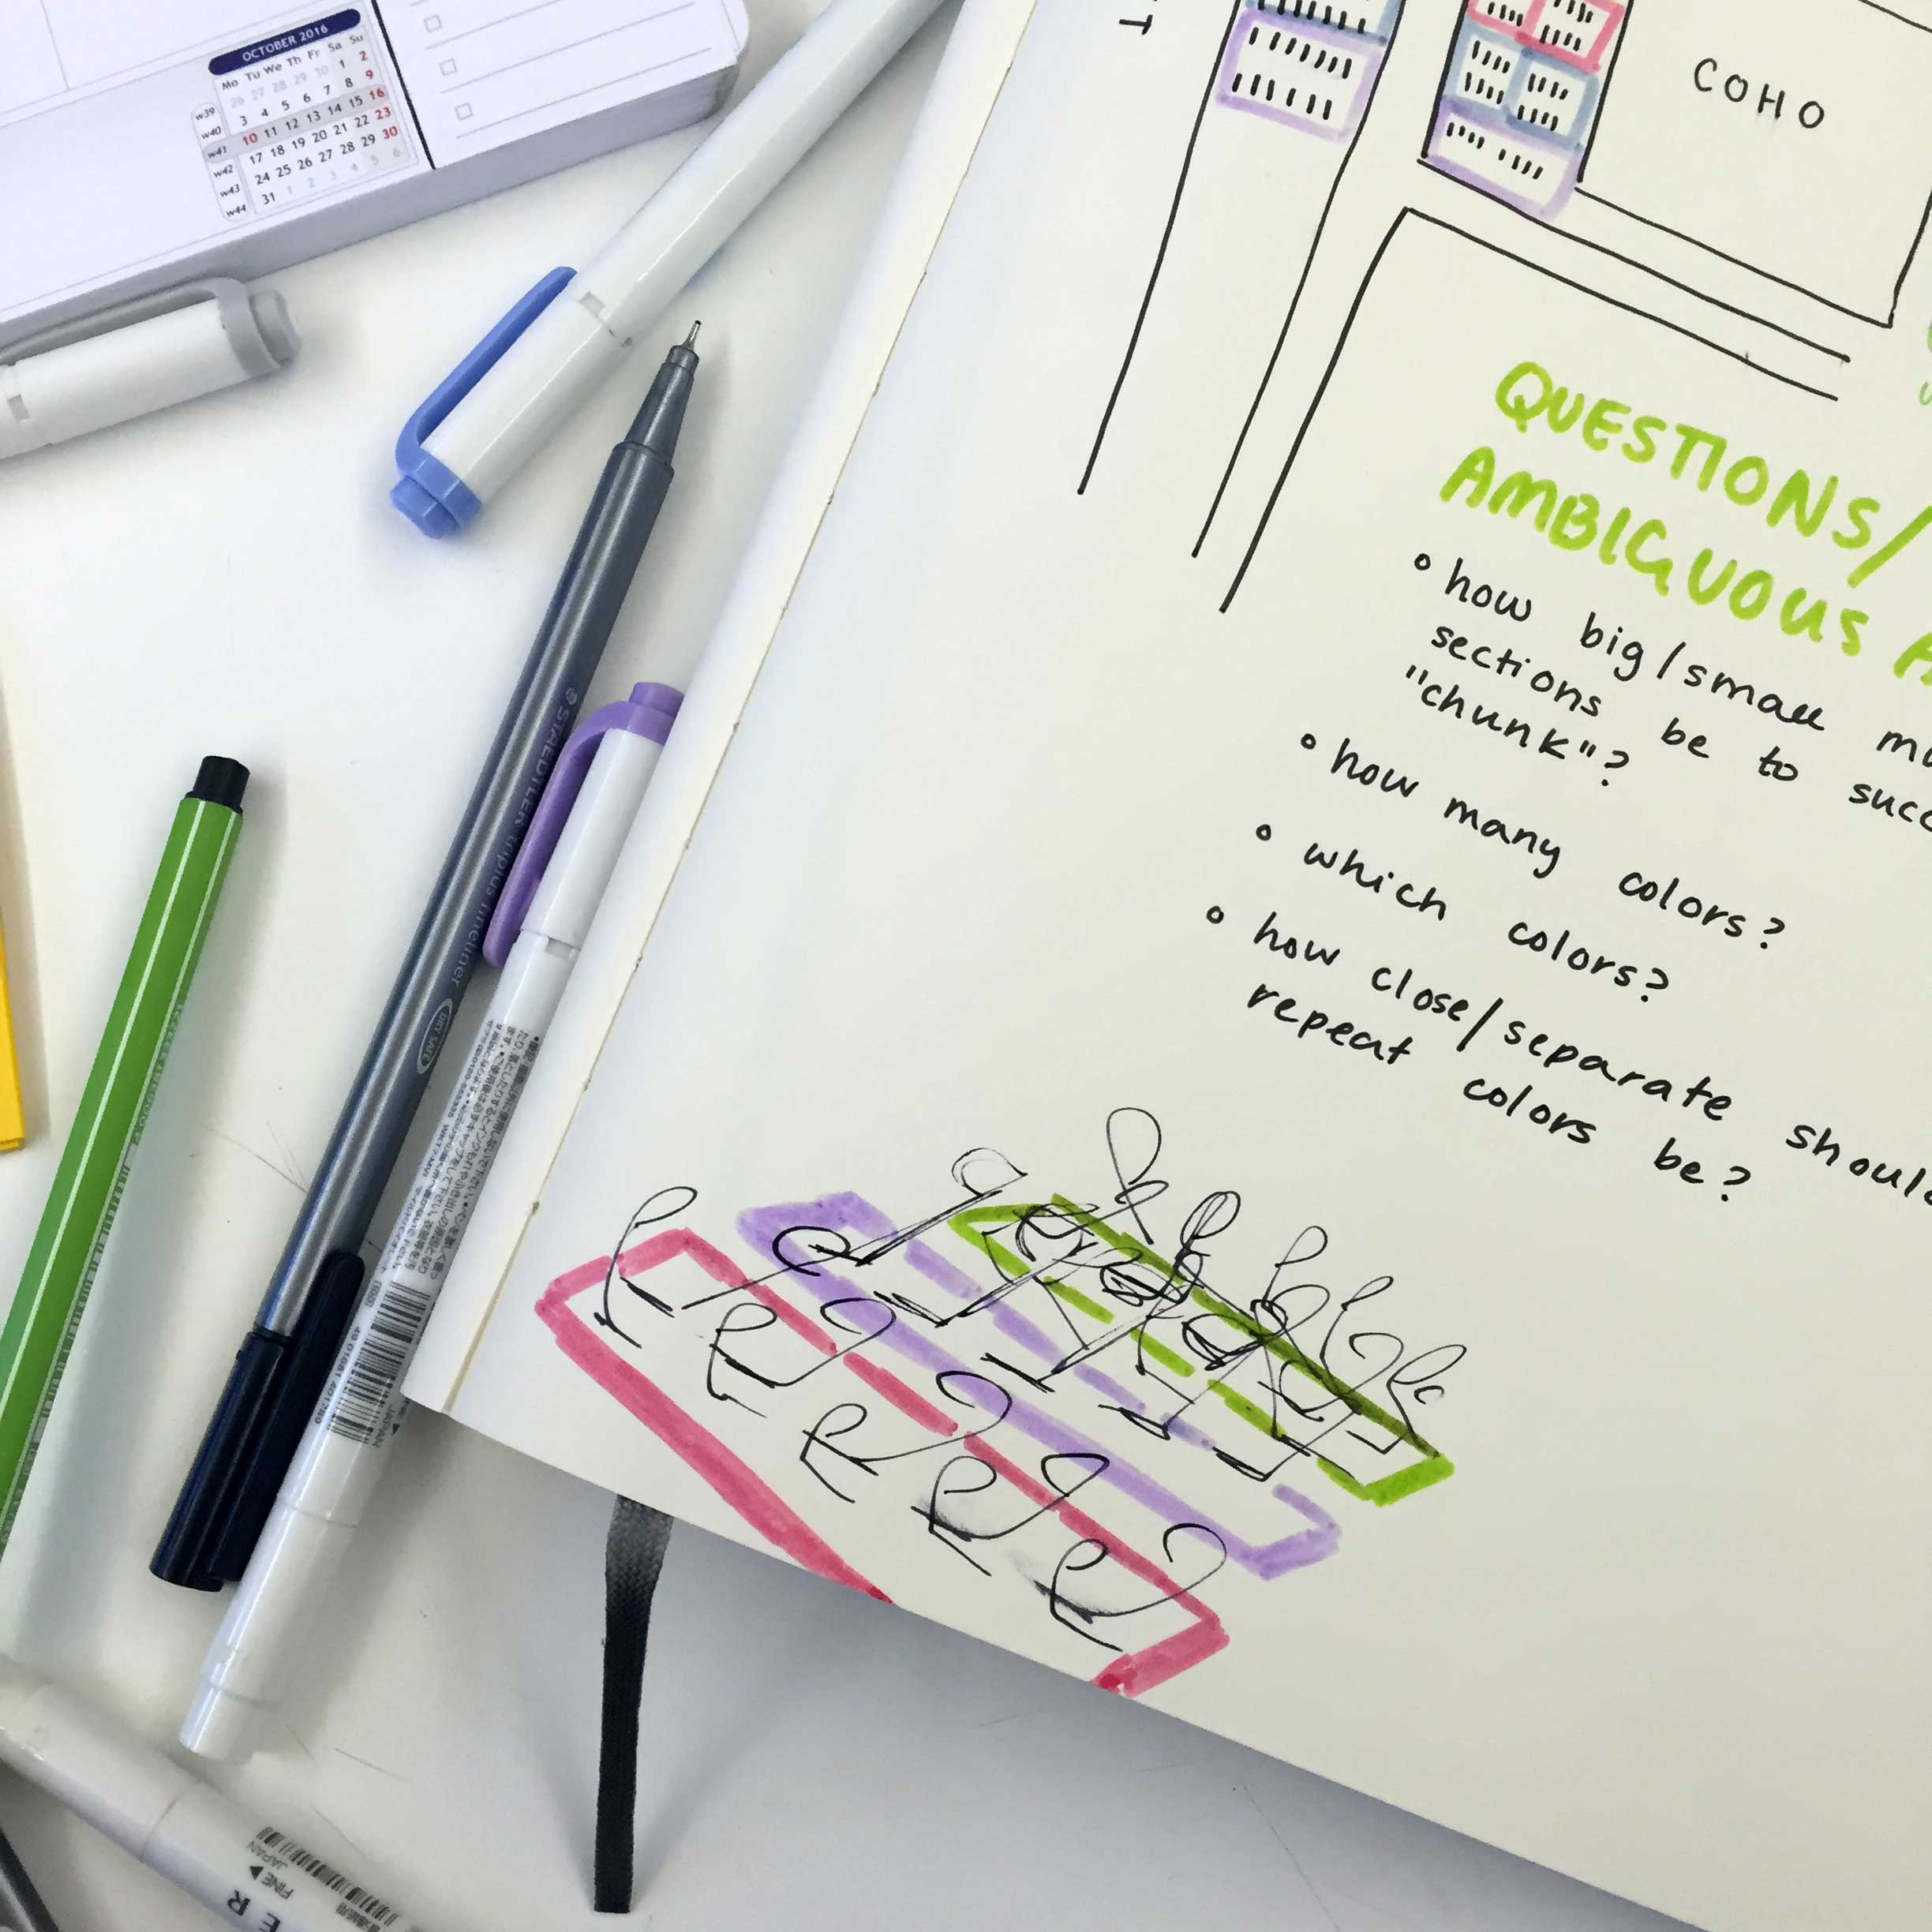 OCTOBER 2016
Mo Tu We Th Fr Sa Su
w39 26 27 28 29 30 1 2
w40 3 4 5 6 7 8 9
w41 10 11 12 13 14 15 16
w42 17 18 19 20 21 22 23
w43 24 25 26 27 28 29 30
w44 31 1 2 3 4 5 6
T
COHO
QUESTIONS/
AMBIGUOUS A
• how big/small mu
sections be to succ
"chunk"?
• how many colors?
• which colors?
• how close/separate should
repeat colors be?
STAEDTLER triplus fineliner DRY SAFE
JAPAN
FINE
JAPAN
ER